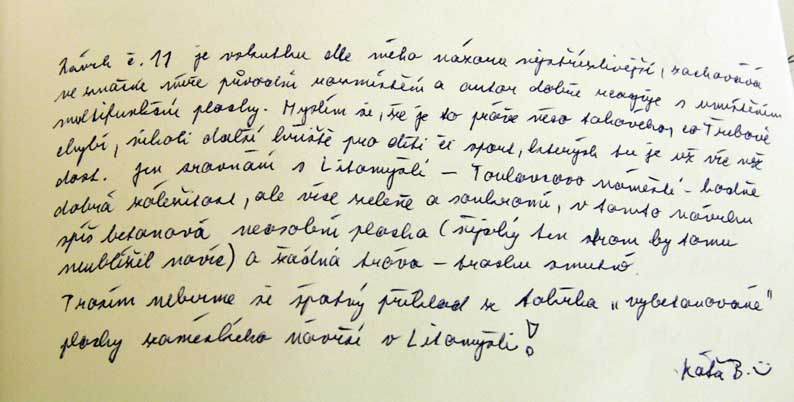 Návrh č. 11 je vskutku dle mého názoru nejstřízlivější, zachovává
ve značné míře původní rozmístění a autor dobře reaguje s umístěním
multifunkční plochy. Myslím si, že je to právě něco takového, co Třebové
chybí, nikoli další hřiště pro děti či sport, kterých tu je už víc než
dost. Jen srovnání s Litomyšlí – Toulovcovo náměstí – hodně
dobrá záležitost, ale více zeleně a soukromí, v tomto návrhu
spíš betonová neosobní plocha (nějaký ten strom by tomu
neublížil navíc) a žádná tráva – trochu smutné.
Prosím neberme si špatný příklad ze tolika „vybetonované"
plochy zámeckého návrší v Litomyšli!
Káťa B. :)